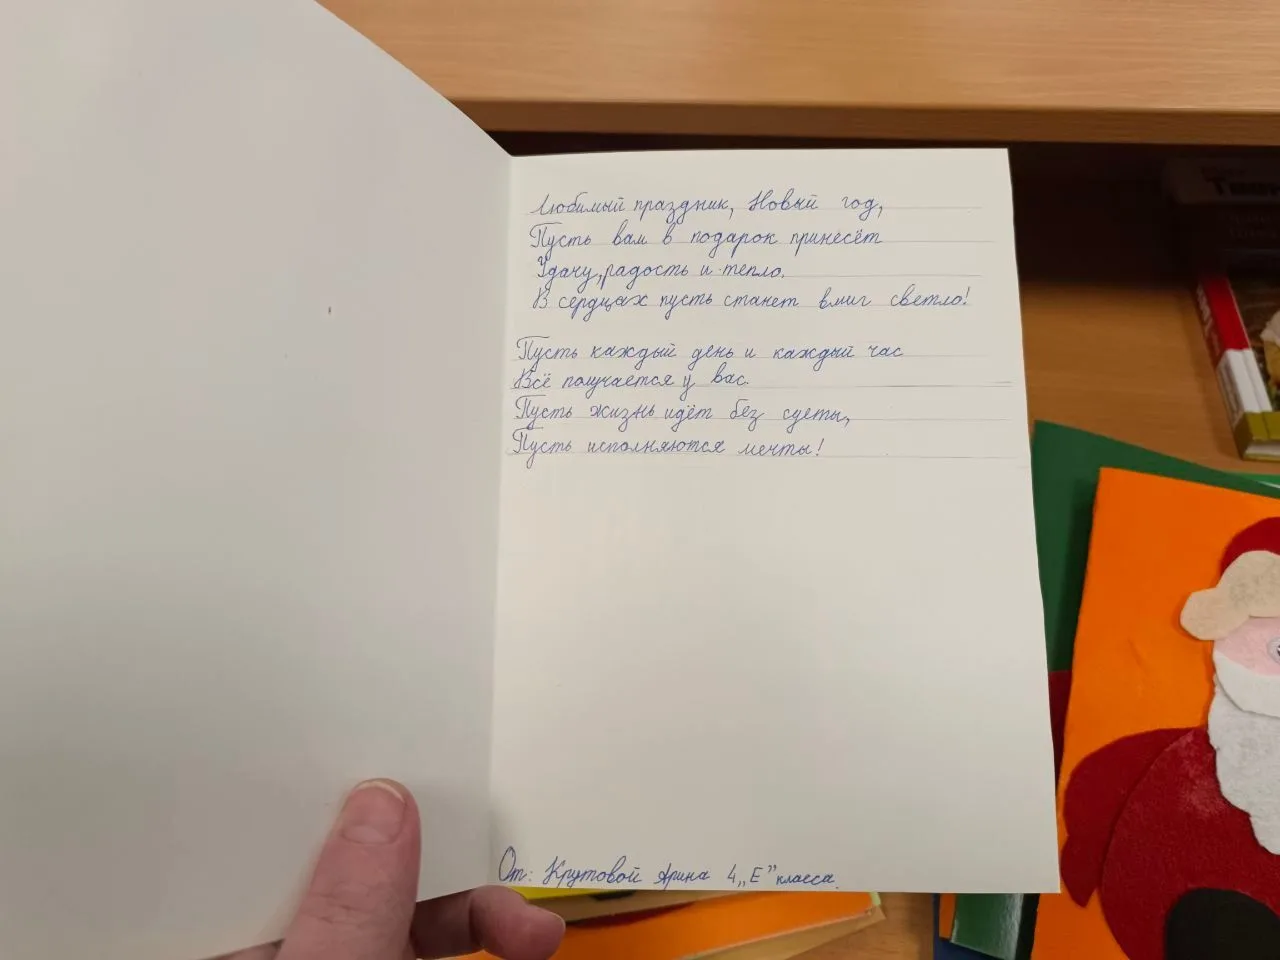 Любимый праздник, Новый год,
Пусть вам в подарок принесёт
Удачу, радость и тепло.
В сердцах пусть станет вмиг светло!
Пусть каждый день и каждый час
Всё получается у вас.
Пусть жизнь идёт без суеты,
Пусть исполняются мечты!
От: Крутовой Арина 4 „Е” класса.